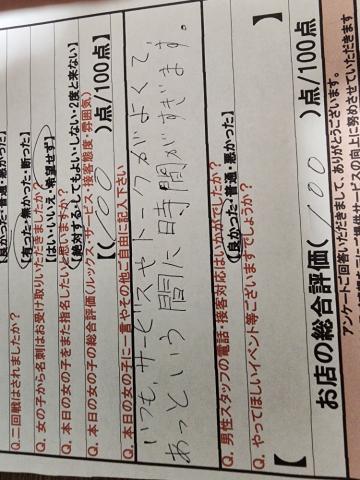 【良かった・普通・悪かった】
Q. 二回戦はされましたか?
【有った・無かった・断った】
Q. 女の子から名刺はお受け取りいただきましたか?
【はい・いいえ・希望せず】
Q. 本日の女の子をまた指名したいと思いますか?
【絶対する・してもよい・しない・2度と来ない】
Q. 本日の女の子の総合評価(ルックス・サービス・接客態度・雰囲気)
【( 100 )点/100点
Q. 本日の女の子に一言やその他ご自由に記入下さい
いつも、サービスやトークがよくて
あっという間に時間がすぎます。
Q. 男性スタッフの電話・接客対応はいかがでしたか?
【良かった・普通・悪かった】
Q. やってほしいイベント等ございますでしょうか?
【
】
お店の総合評価( 100 )点/100点
アンケートご回答いただきまして、ありがとうございます。
サービスの向上に努めさせていただきます